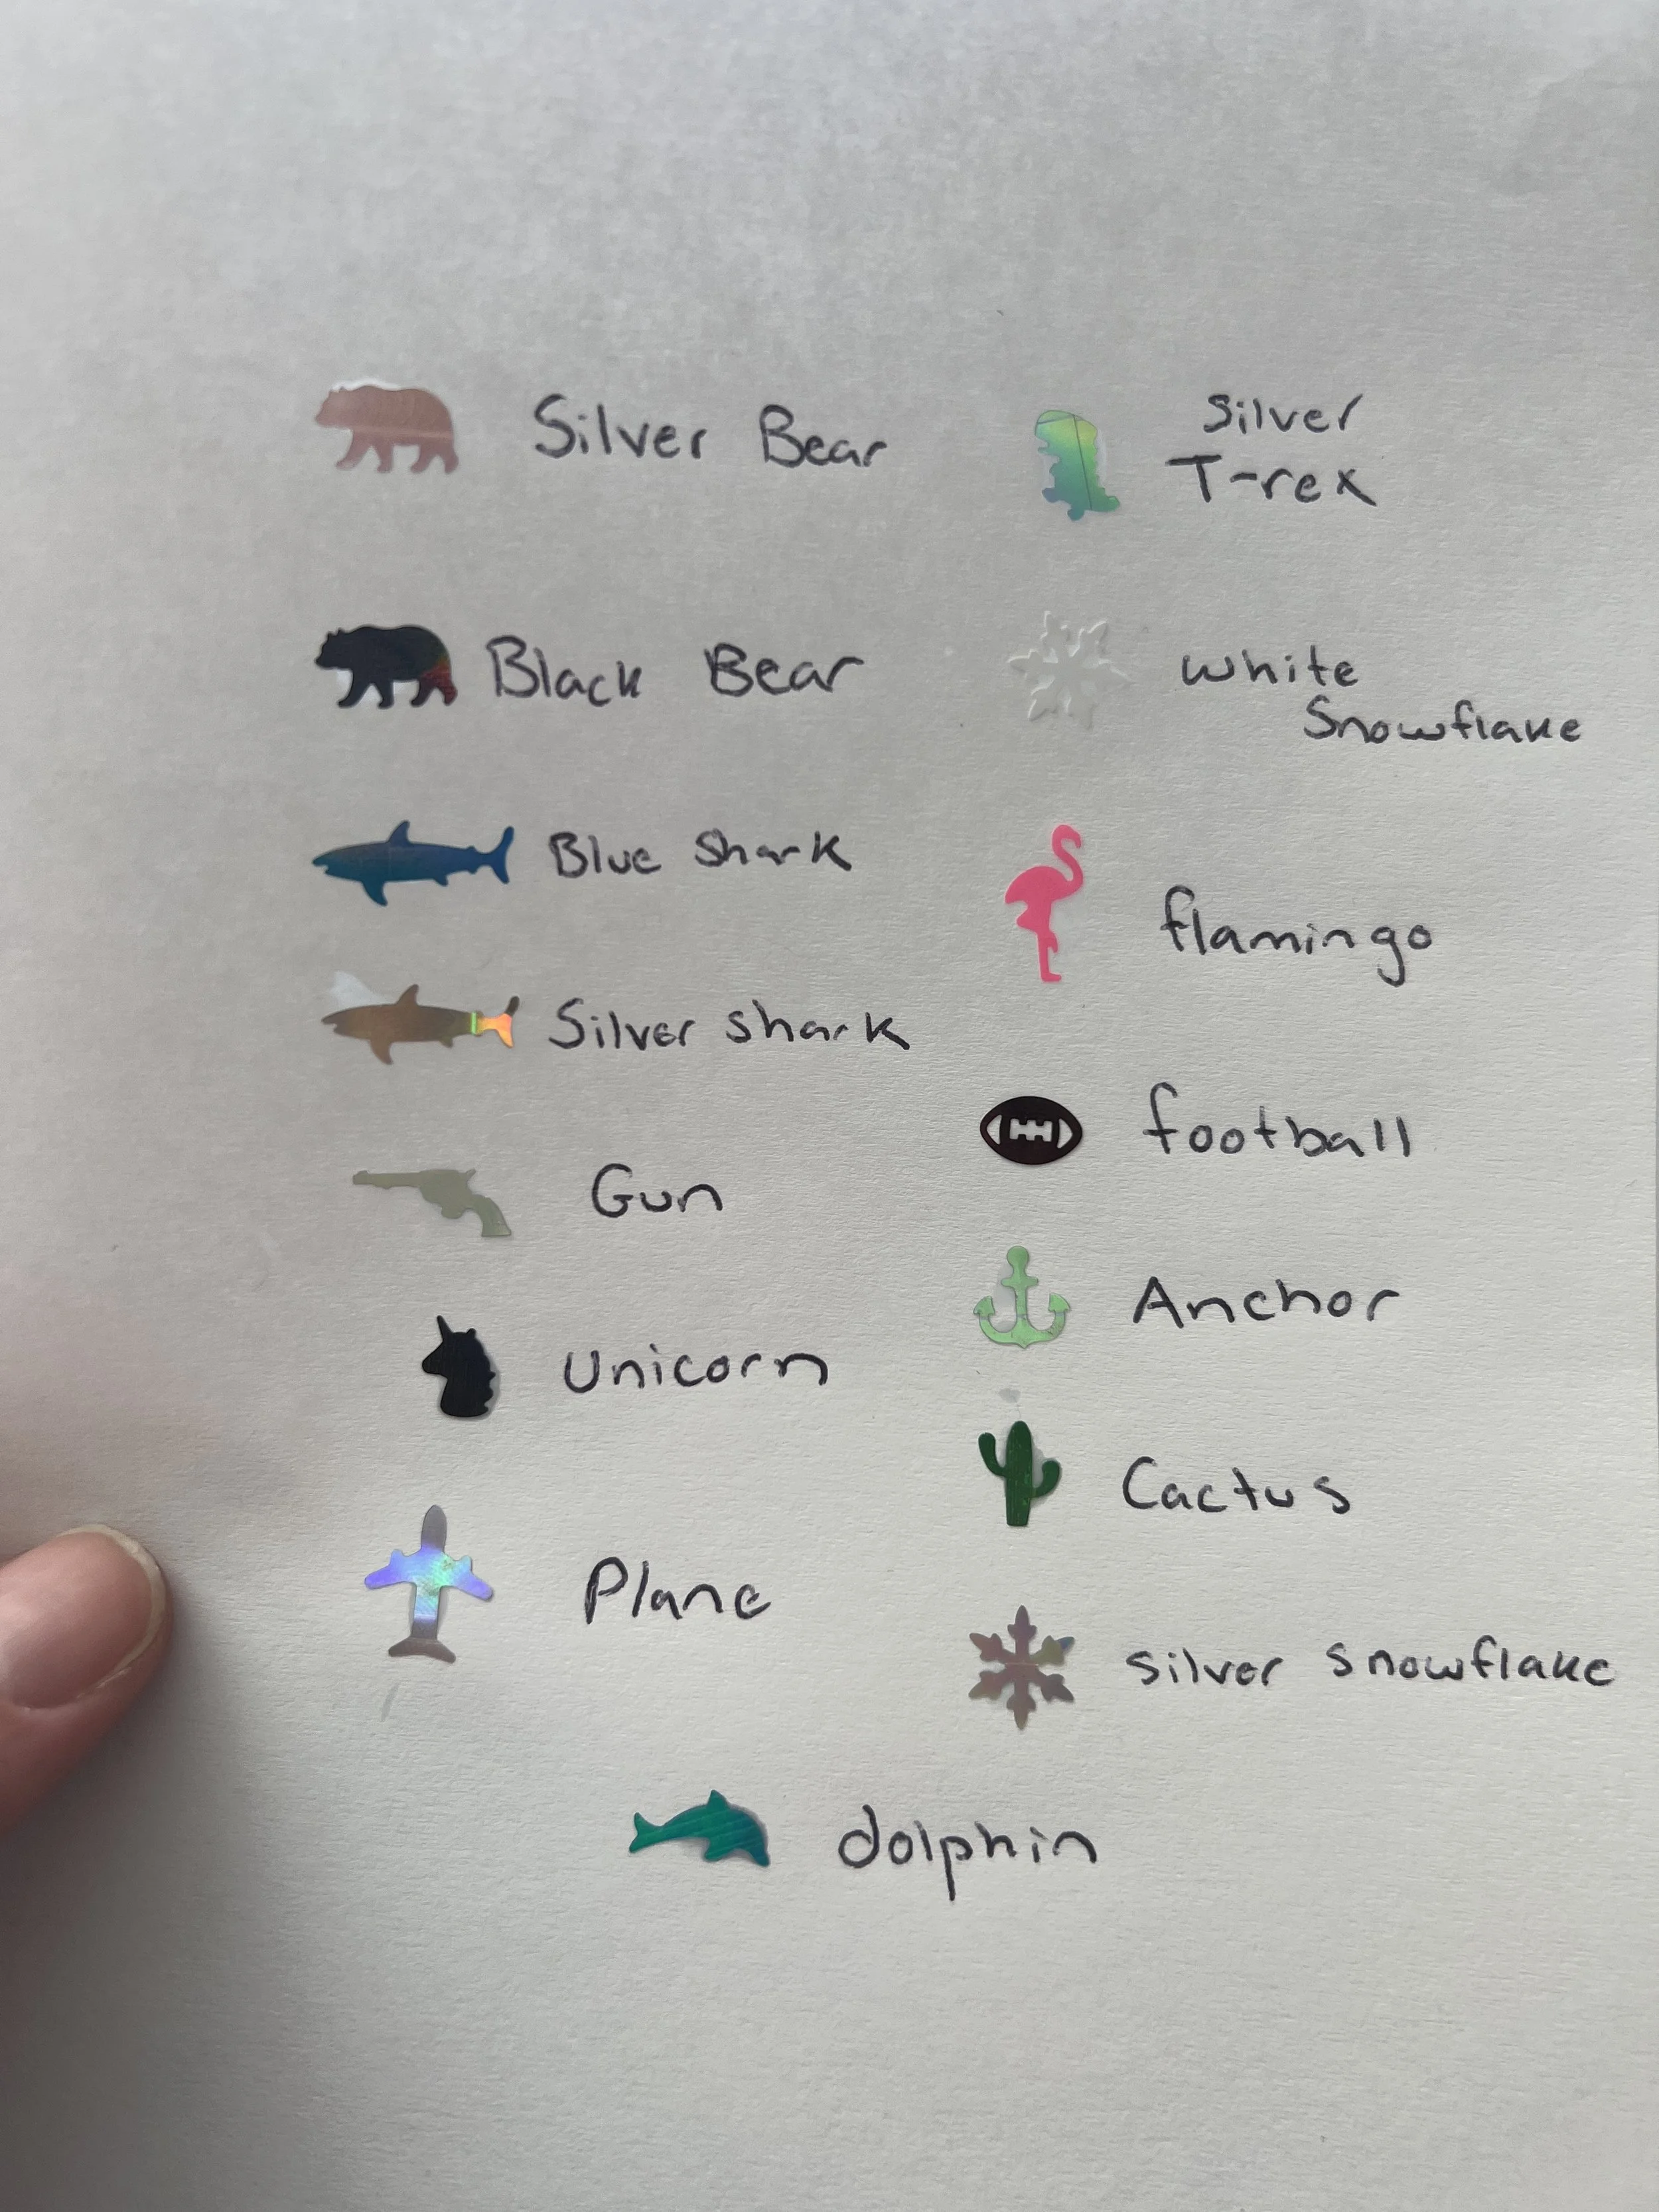 Silver Bear
Black Bear
Blue Shark
Silver shark
Gun
Unicorn
Plane
Silver
T-rex
white
Snowflake
flamingo
football
Anchor
Cactus
silver snowflake
dolphin